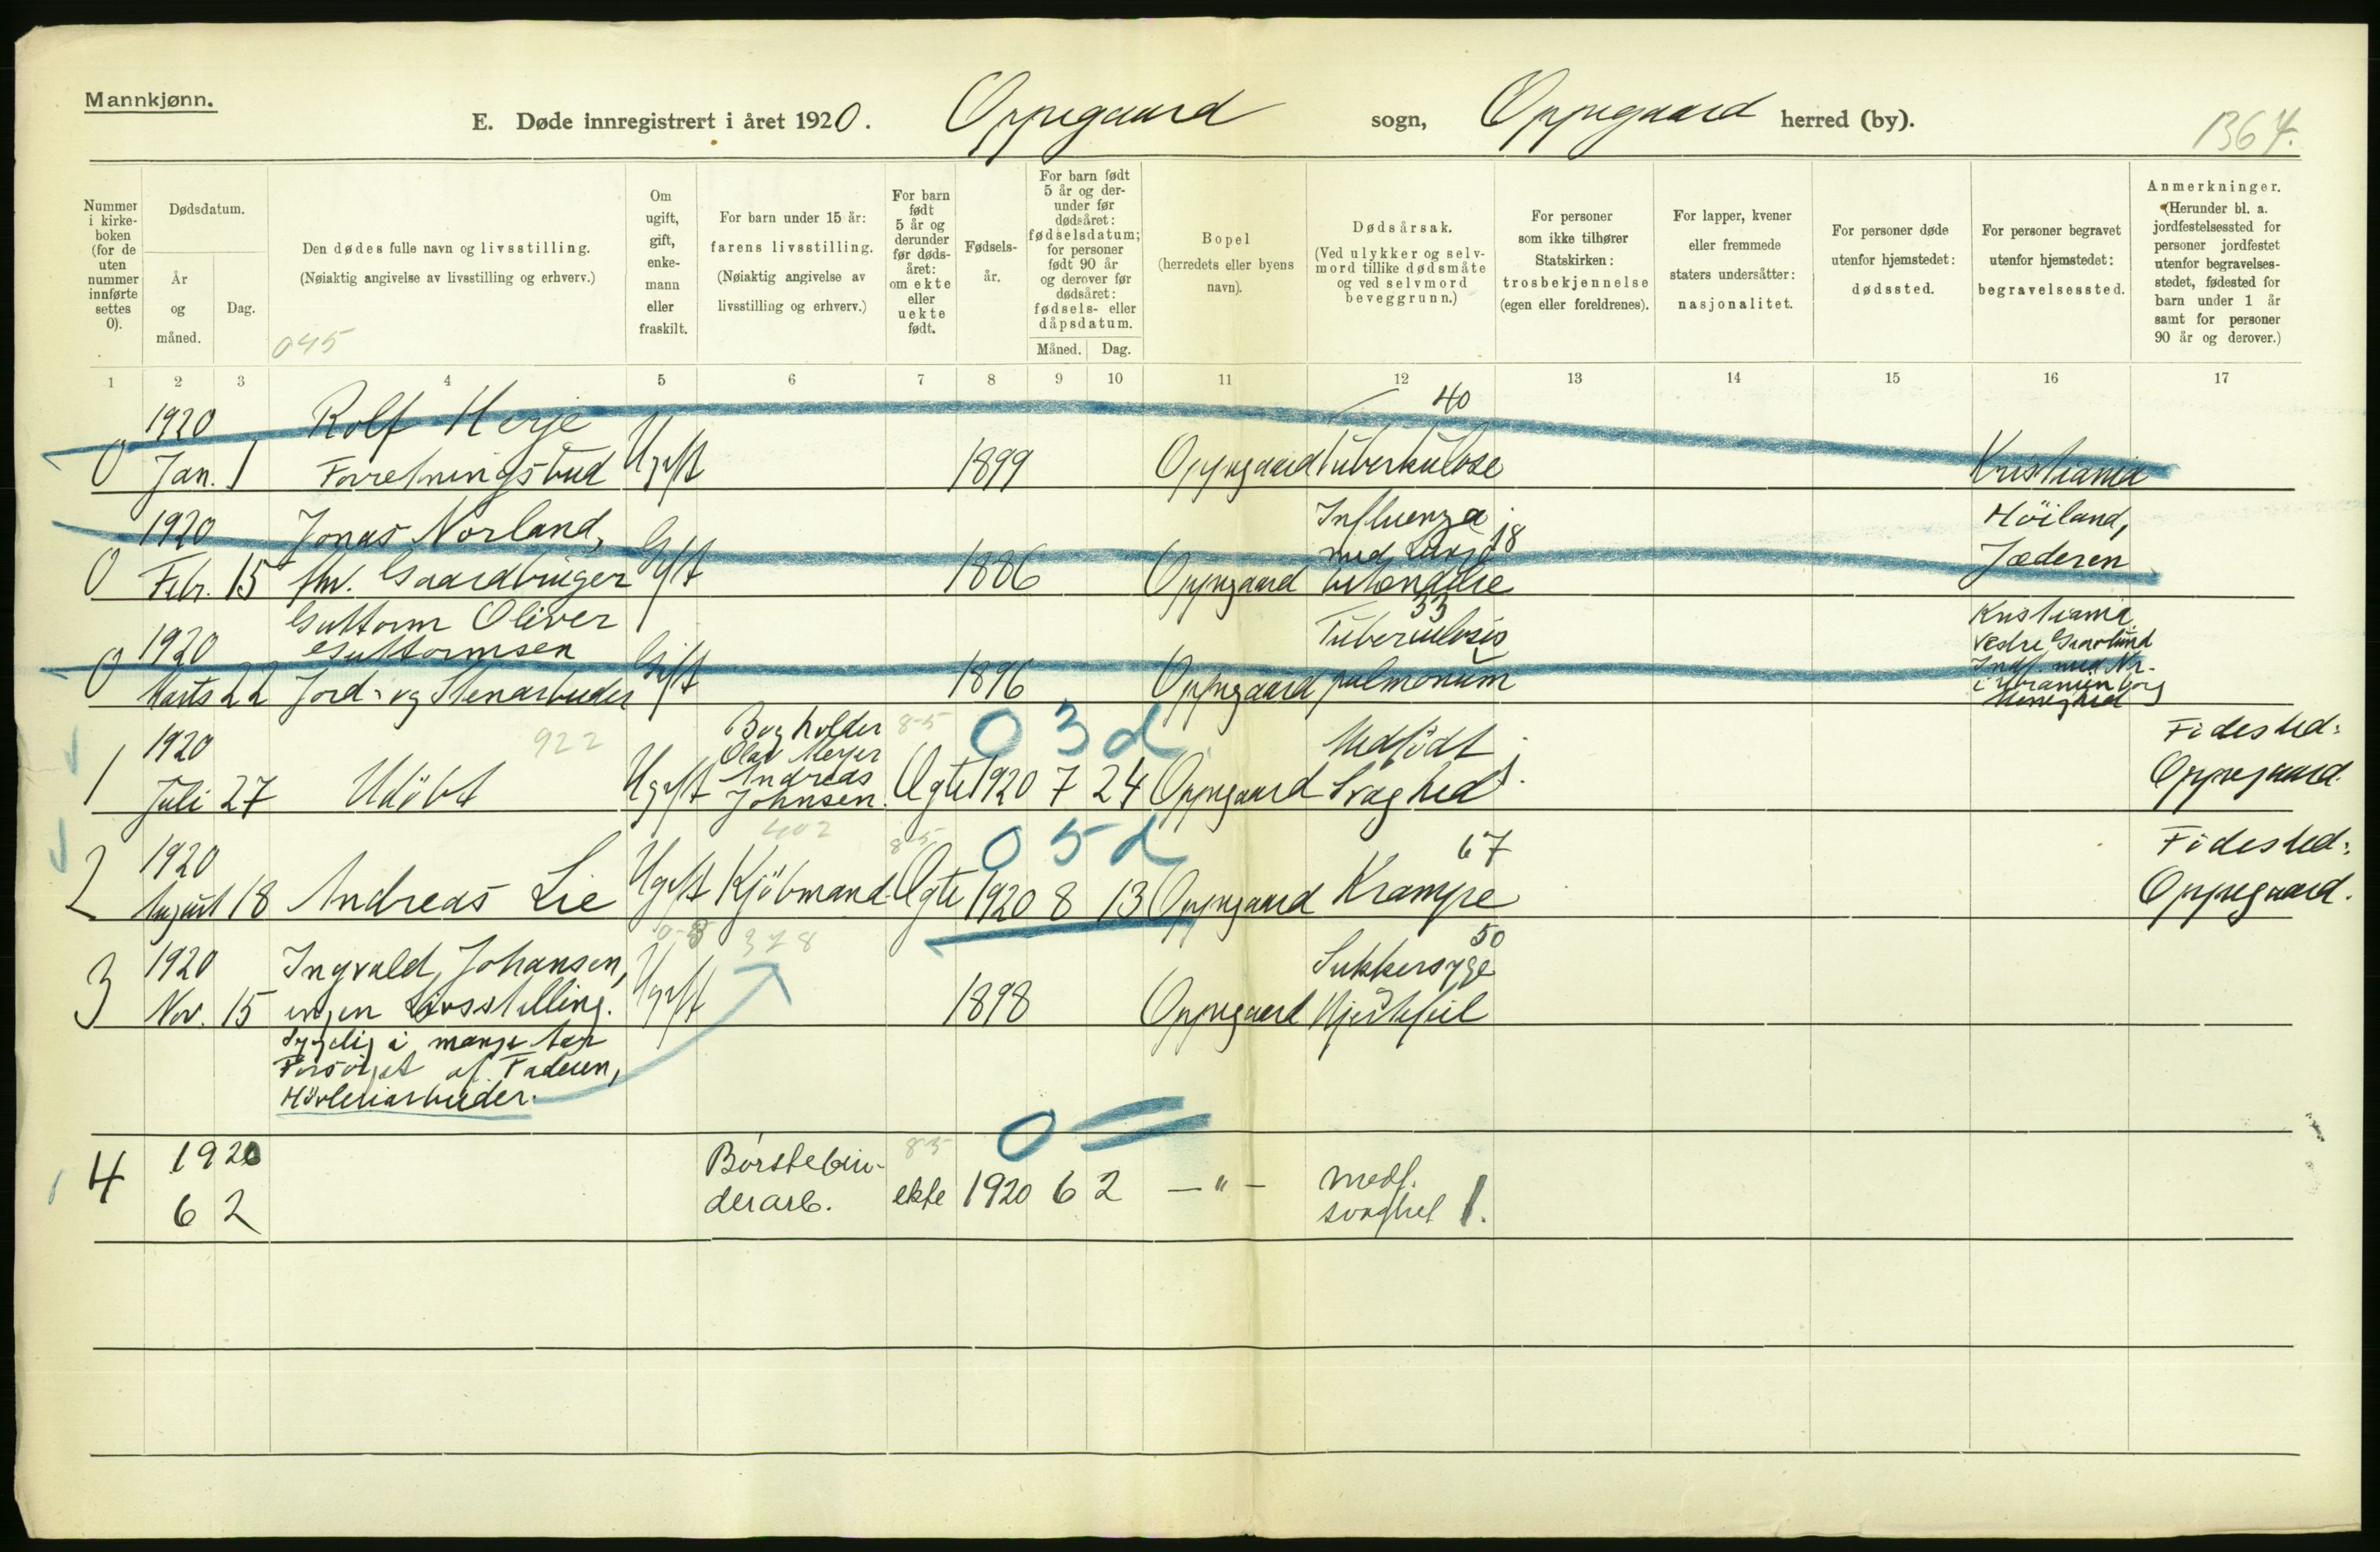 Mannkjønn.
E. Døde innregistrert i året 1920. Oppegaard sogn, Oppegaard herred (by).
1364.
Nummer i kirkeboken (for de uten nummer innførte settes 0).
Dødsdatum.
År og måned.
Dag.
Den dødes fulle navn og livsstilling.
(Nøiaktig angivelse av livsstilling og erhverv.)
045
Om ugift, gift, enkemann eller fraskilt.
For barn under 15 år:
farens livsstilling.
(Nøiaktig angivelse av livsstilling og erhverv.)
For barn født 5 år og derunder før dødsåret: om ekte eller uekte født.
Fødselsår.
For barn født 5 år og derunder før dødsåret: fødselsdatum; for personer født 90 år og derover før dødsåret: fødsels- eller dåpsdatum.
Måned. Dag.
Bopel
(herredets eller byens navn).
Dødsårsak.
(Ved ulykker og selvmord tillike dødsmåte og ved selvmord beveggrunn.)
For personer som ikke tilhører Statskirken:
trosbekjennelse
(egen eller foreldrenes).
For lapper, kvener eller fremmede staters undersåtter:
nasjonalitet.
For personer døde utenfor hjemstedet:
dødssted.
For personer begravet utenfor hjemstedet:
begravelsessted.
Anmerkninger.
(Herunder bl. a. jordfestelsessted for personer jordfestet utenfor begravelsesstedet, fødested for barn under 1 år samt for personer 90 år og derover.)
1 2 3 4 5 6 7 8 9 10 11 12 13 14 15 16 17
1920 Rolf Herje 40
0 Jan. 1 Forretningsbud Ugift 1899 Oppegaard Tuberkulose Kristiania
1920 Jonas Norland, Influenza 18 Höiland,
0 Febr. 15 fhv. Gaardbruger Gift 1886 Oppegaard med Lungebetændelse Jæderen
Guttorm Oliver 33 Kristiania
1920 Guttormsen Tuberculosis Vestre Gravlund
0 Marts 22 Jord- og Stenarbeider Gift 1896 Oppegaard pulmonum Indf. med Nr.
i Uranienborg
Menighed
922 Bogholder 8-5 0 3 d
1920 Olav Meyer Medfödt Födested:
1 Juli 27 Udöbt Ugift Andreas Johnsen. Ægte 1920 7 24 Oppegaard Svaghed 1. Oppegaard.
402 8-5 0 5 d
1920 67 Födested:
2 August 18 Andreas Lie Ugift Kjöbmand Ægte 1920 8 13 Oppegaard Krampe Oppegaard.
378 50
1920 Ingvald Johansen, Sukkersyge
3 Nov. 15 ingen Livsstilling. Ugift 1898 Oppegaard Hjertefeil
Sygelig i mange Aar
Forsörget af Faderen,
Hövleriarbeider.
0 =
1920 Börstebin- 8-5 medf.
4 6 2 derarb. ekte 1920 6 2 — " — svaghet 1.